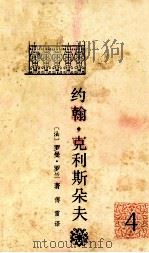 约翰·克利斯朵夫
〔法〕罗曼·罗兰 著
傅雷 译
4
www.duxiu.com